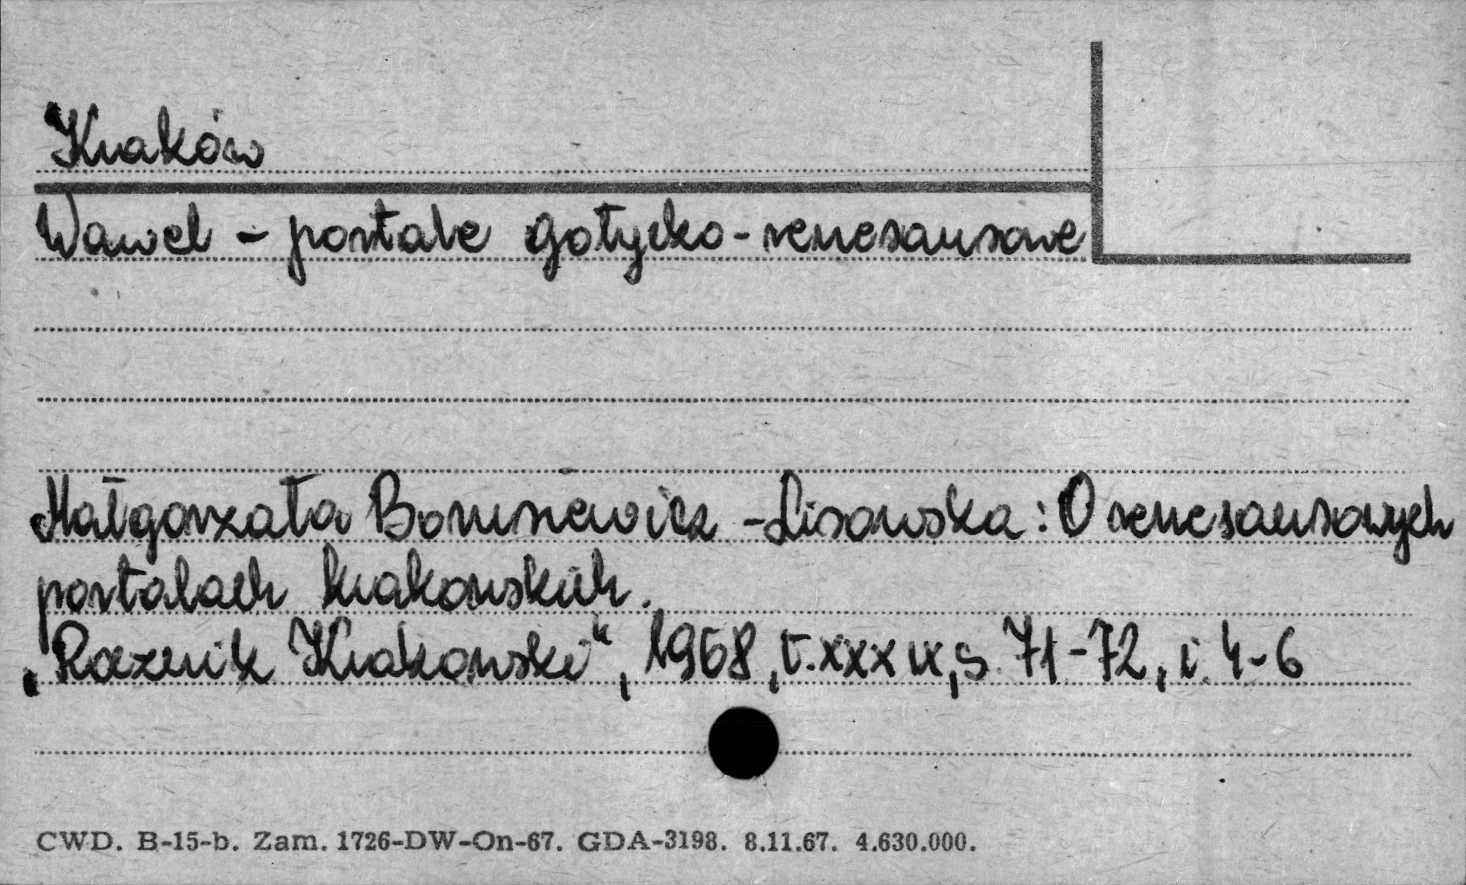 Kraków
Wawel - portale gotycko-renesansowe
Małgorzata Borusiewicz-Lisowska: O renesansowych
portalach krakowskich.
„Rocznik Krakowski", 1968, t. XXXIX, s. 71-72, i. 4-6
CWD. B-15-b. Zam. 1726-DW-On-67. GDA-3198. 8.11.67. 4.630.000.